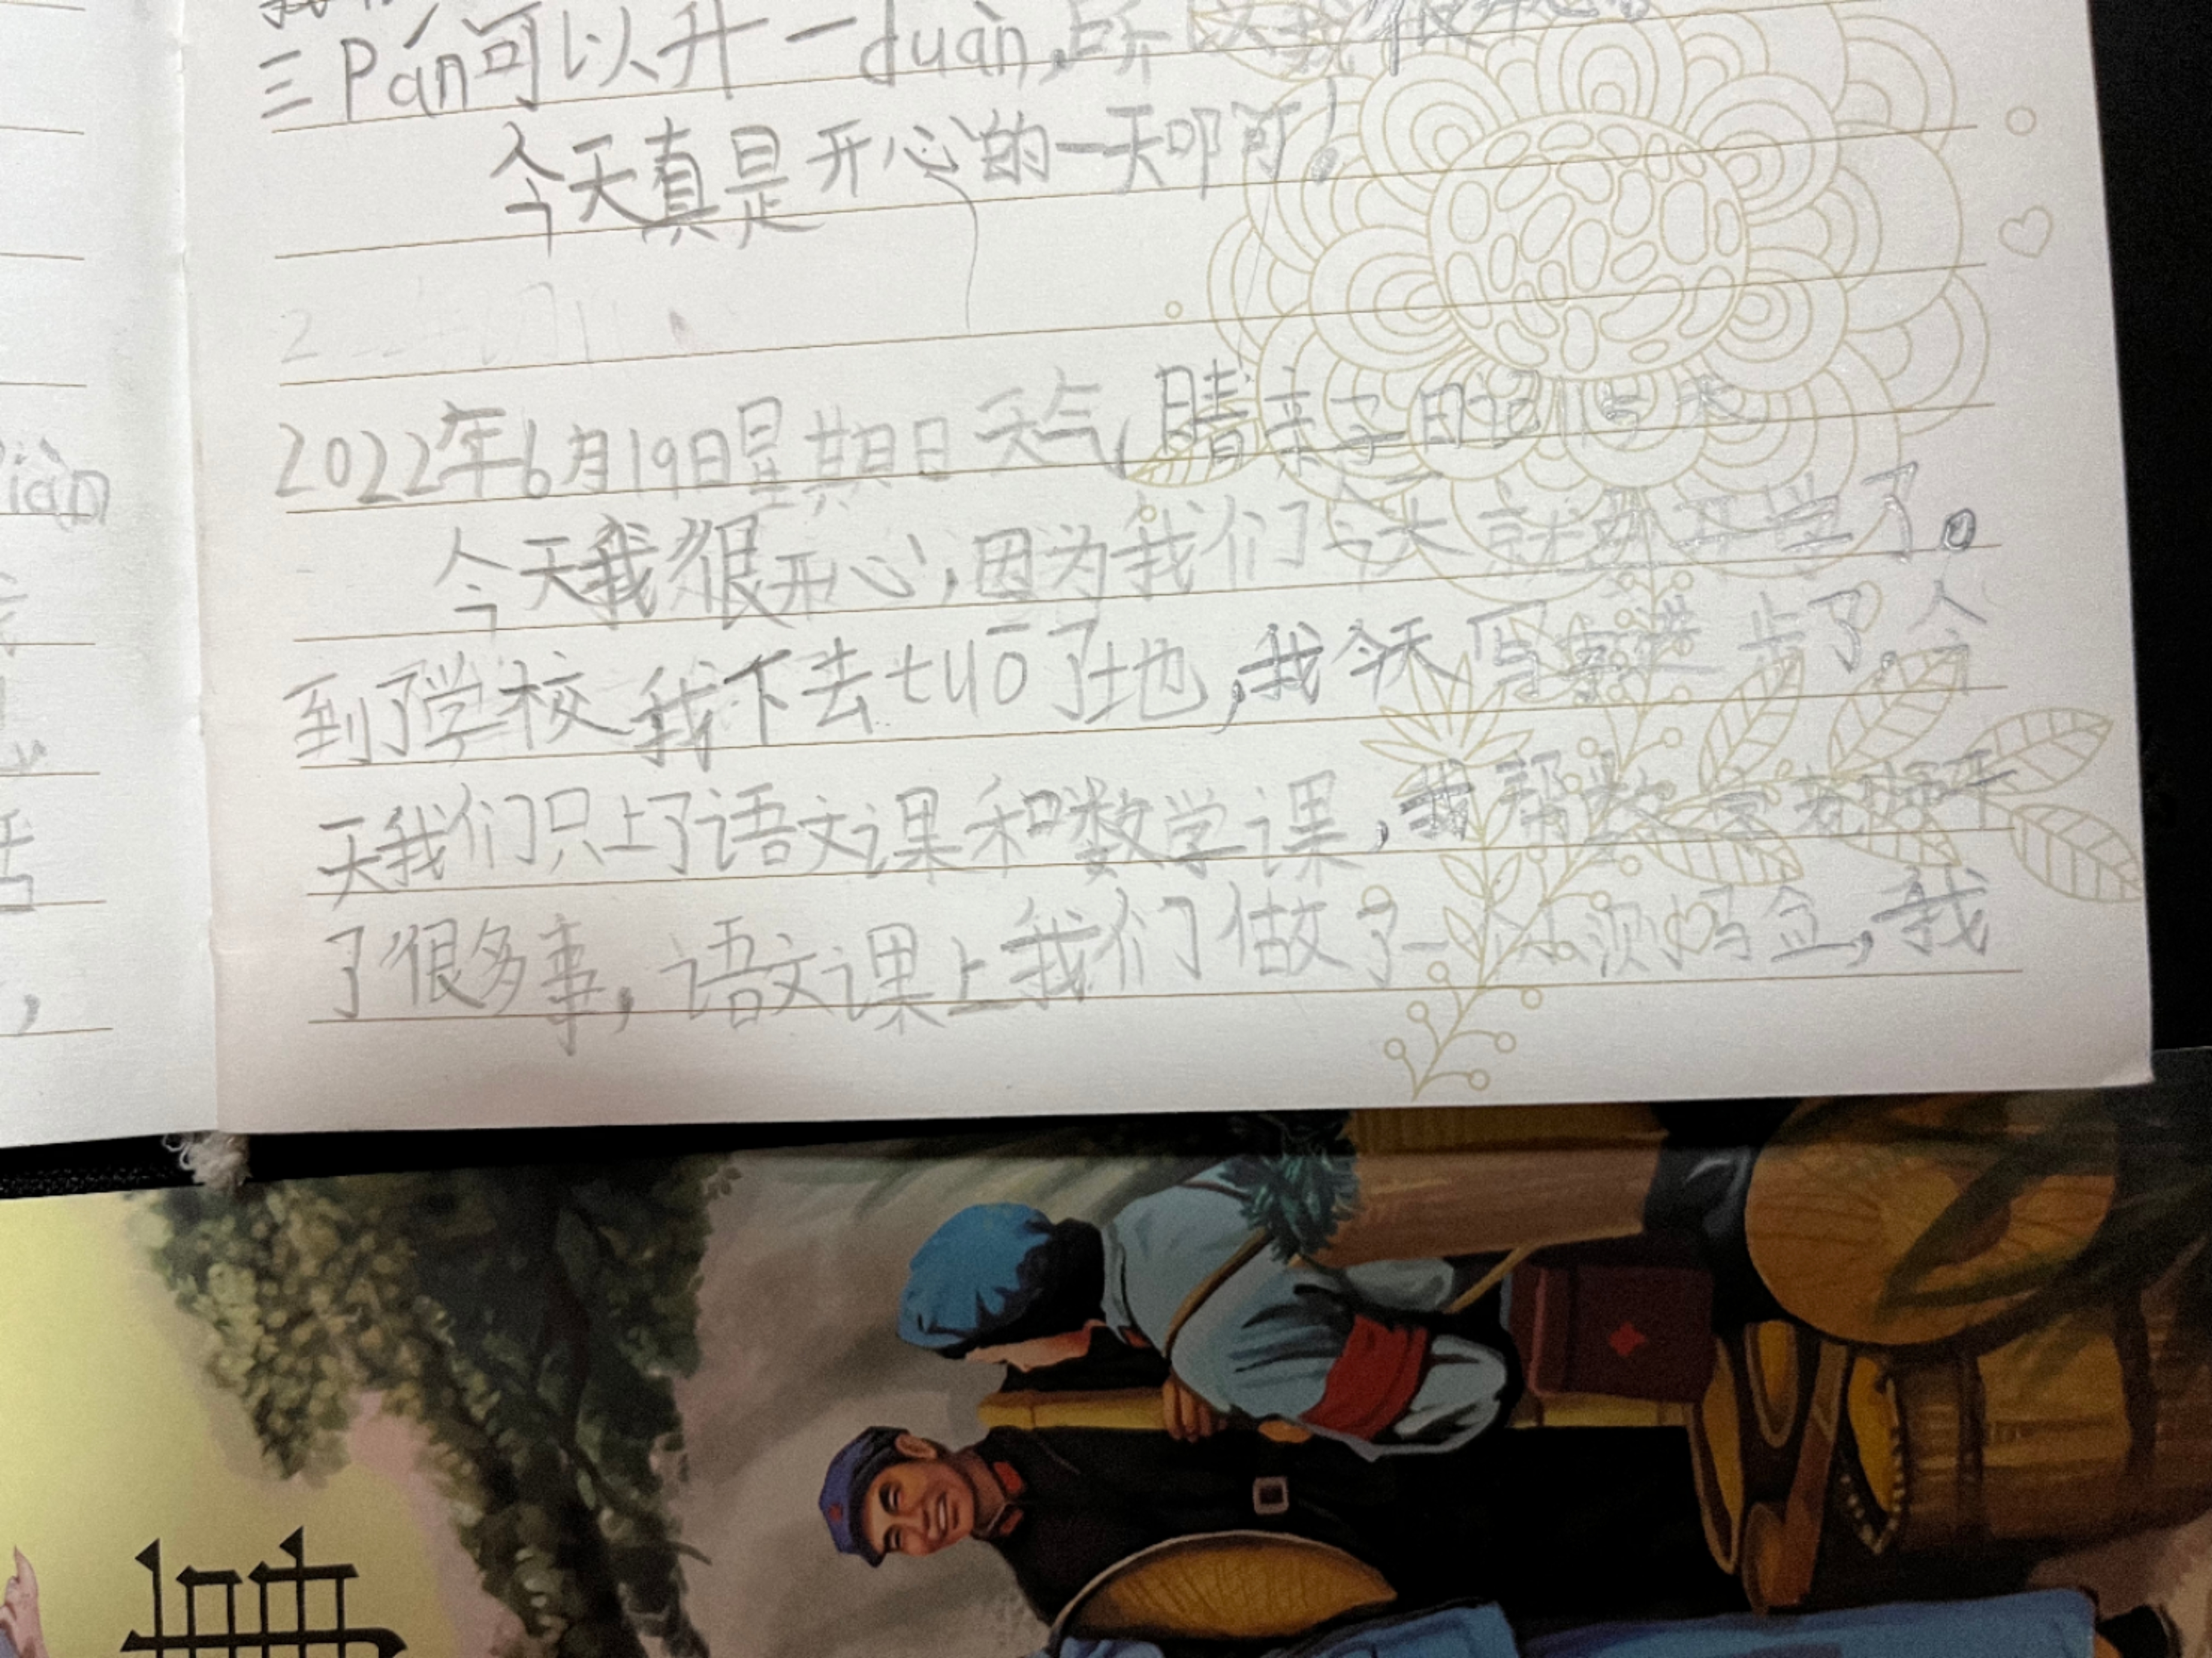 三Pán可以升一duàn,所以我很
今天真是开心的一天啊!
2022年6月19日星期日天气,晴亲子日记115天
今天我很开心,因为我们今天就开学了。
到了学校我下去tuō了地,我今天写字进步了,今
天我们只上了语文课和数学课,我帮数学老师干
了很多事,语文课上我们做了一,我
iàn